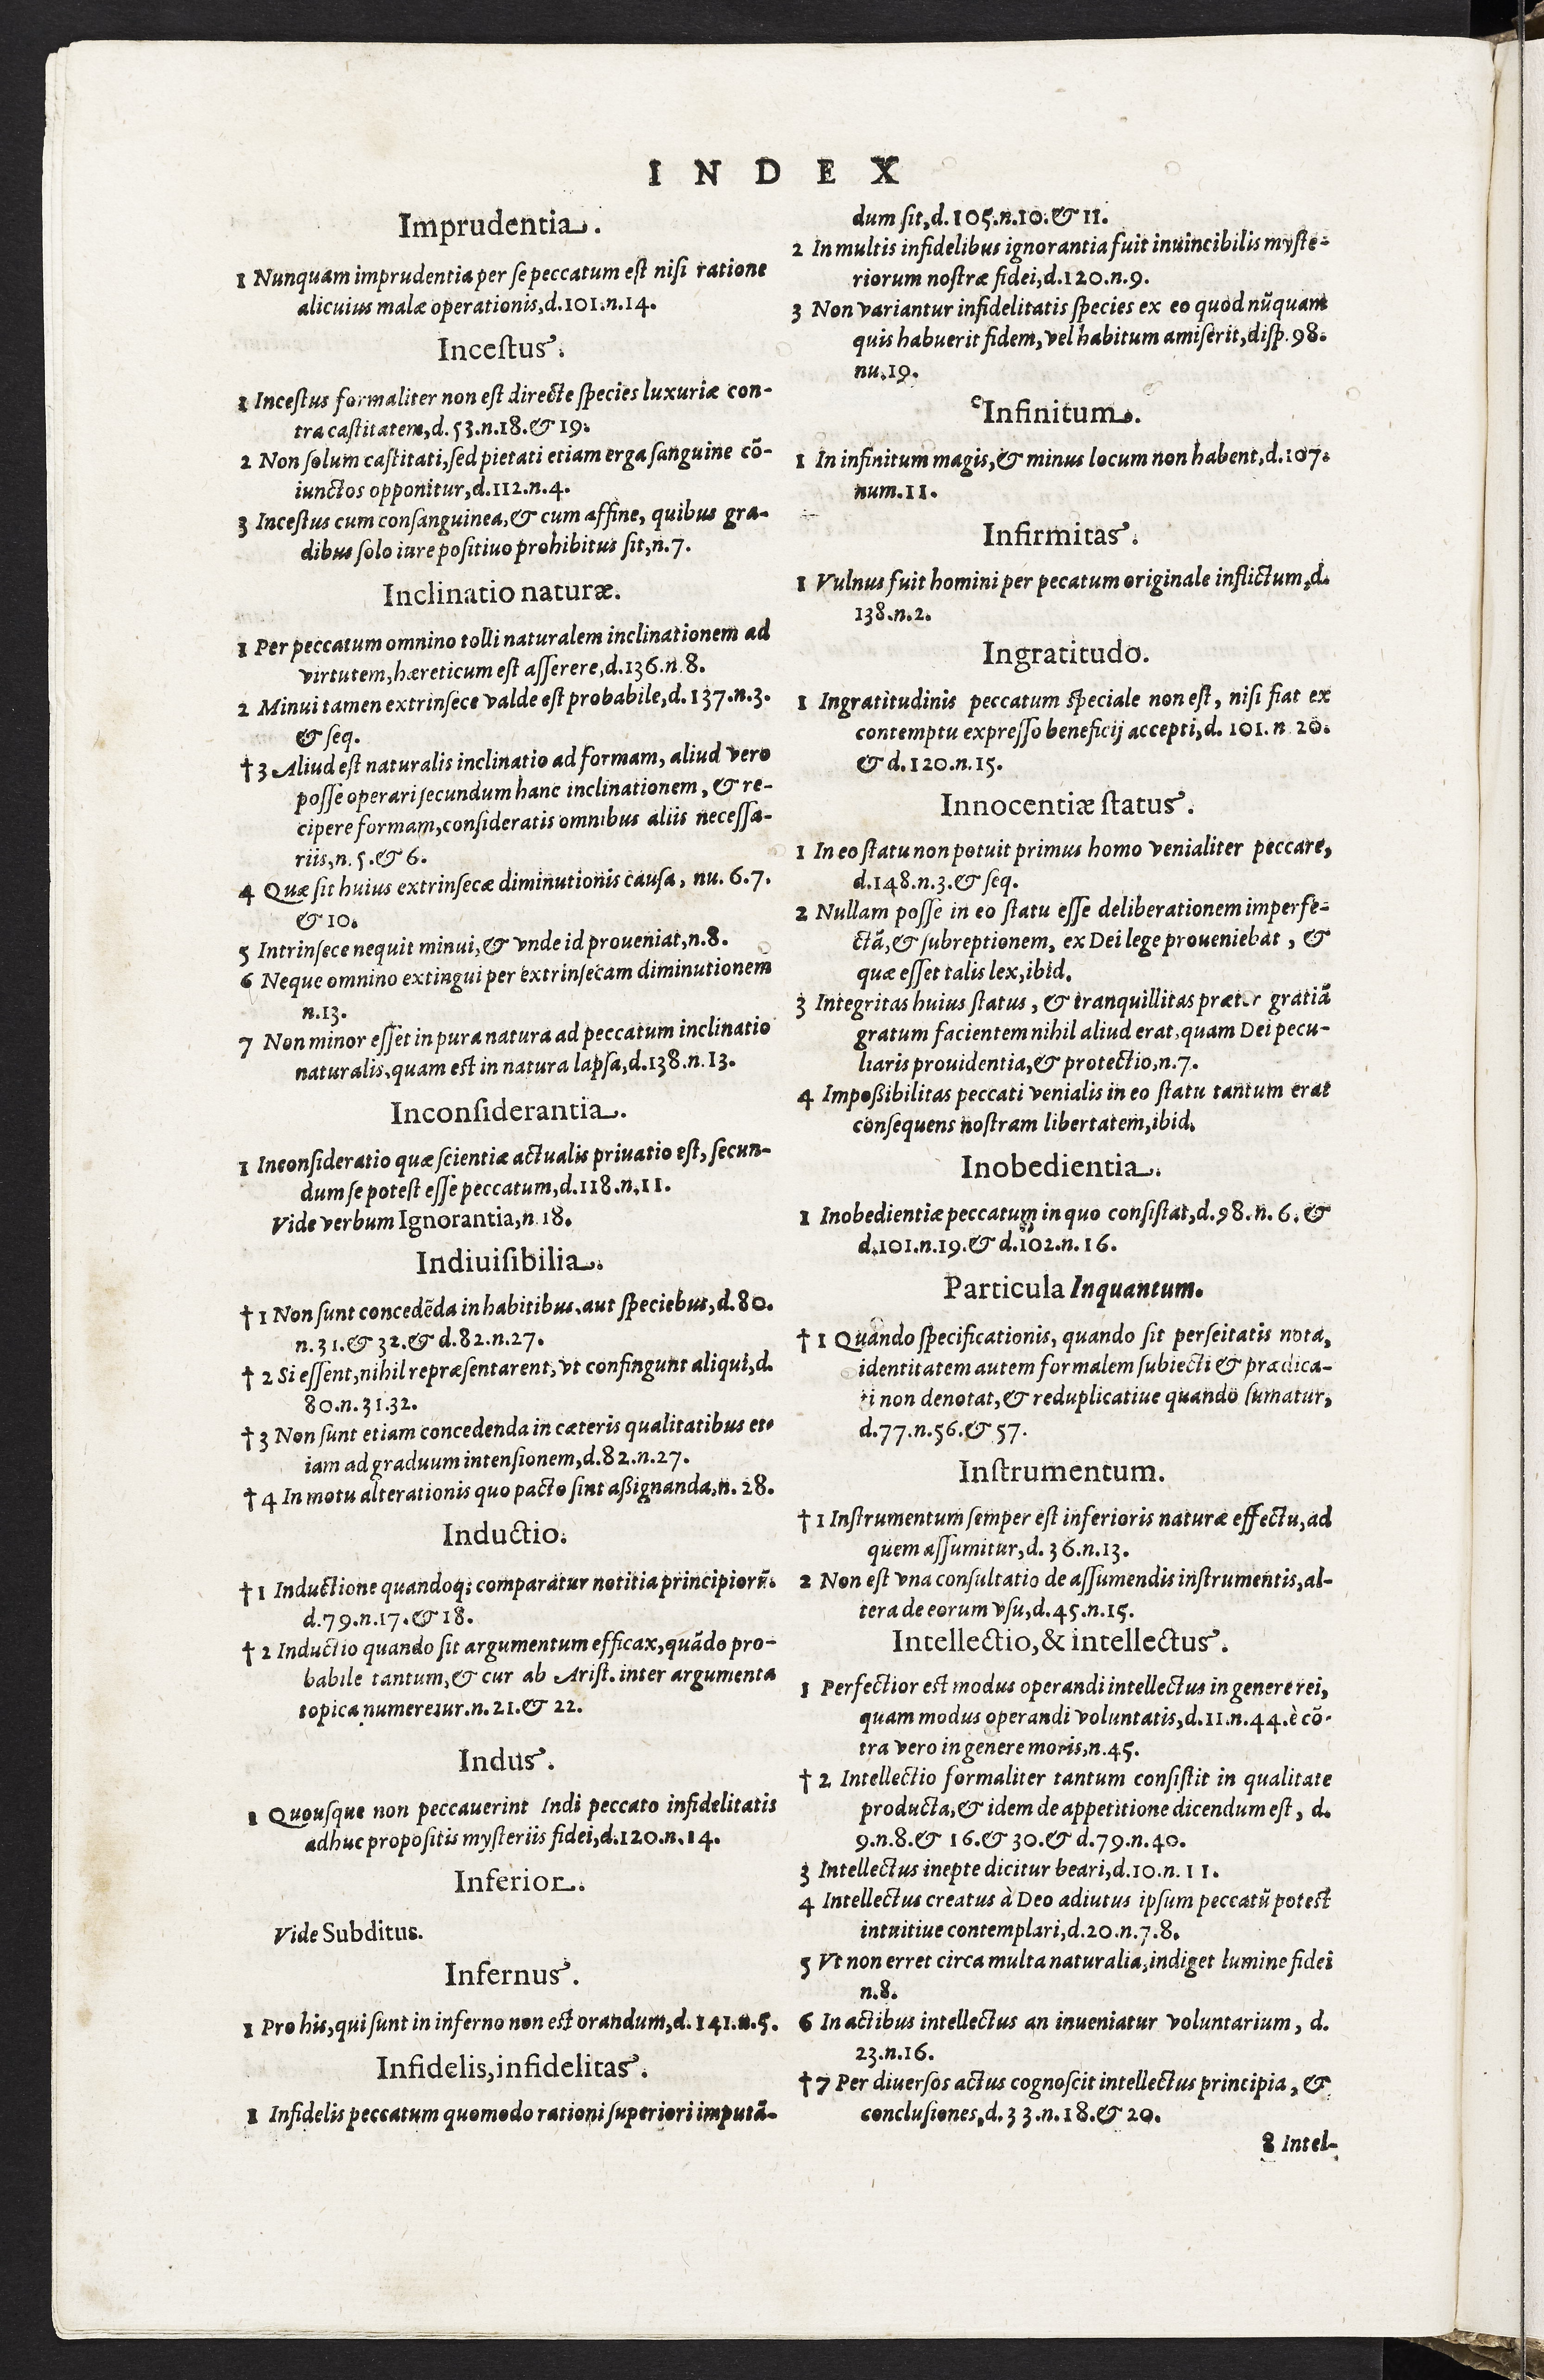 INDEX
Imprudentia.
1 Nunquam imprudentia per se peccatum est nisi ratione
alicuius malæ operationis, d.101.n.14.
Incestus.
1 Incestus formaliter non est directe species luxuriæ con-
tra castitatem, d.53.n.18.& 19.
2 Non solum castitati, sed pietati etiam erga sanguine cō-
iunctos opponitur, d.112.n.4.
3 Incestus cum consanguinea, & cum affine, quibus gra-
dibus solo iure positiuo prohibitus sit, n.7.
Inclinatio naturæ.
1 Per peccatum omnino tolli naturalem inclinationem ad
virtutem, hæreticum est asserere, d.136.n.8.
2 Minui tamen extrinsece valde est probabile, d.137.n.3.
& seq.
†3 Aliud est naturalis inclinatio ad formam, aliud vero
posse operari secundum hanc inclinationem, & re-
cipere formam, consideratis omnibus aliis necessa-
riis, n.5.& 6.
4 Quæ sit huius extrinsecæ diminutionis causa, nu.6.7.
& 10.
5 Intrinsece nequit minui, & vnde id proueniat, n.8.
6 Neque omnino extingui per extrinsecam diminutionem
n.13.
7 Non minor esset in pura natura ad peccatum inclinatio
naturalis, quam est in natura lapsa, d.138.n.13.
Inconsiderantia.
1 Inconsideratio quæ scientiæ actualis priuatio est, secun-
dum se potest esse peccatum, d.118.n.11.
Vide verbum Ignorantia, n.18.
Indiuisibilia.
†1 Non sunt concedēda in habitibus, aut speciebus, d.80.
n.31.& 32.& d.82.n.27.
†2 Si essent, nihil repræsentarent, vt confingunt aliqui, d.
80.n.31.32.
†3 Non sunt etiam concedenda in cæteris qualitatibus et-
iam ad graduum intensionem, d.82.n.27.
†4 In motu alterationis quo pacto sint aßignanda, n.28.
Inductio.
†1 Inductione quandoq; comparatur notitia principiorū.
d.79.n.17.& 18.
†2 Inductio quando sit argumentum efficax, quādo pro-
babile tantum, & cur ab Arist. inter argumenta
topica numeretur.n.21.& 22.
Indus.
1 Quousque non peccauerint Indi peccato infidelitatis
adhuc propositis mysteriis fidei, d.120.n.14.
Inferior.
Vide Subditus.
Infernus.
1 Pro his, qui sunt in inferno non est orandum, d.141.n.5.
Infidelis, infidelitas.
1 Infidelis peccatum quomodo rationi superiori imputā-
dum sit, d.105.n.10.& 11.
2 In multis infidelibus ignorantia fuit inuincibilis myste-
riorum nostræ fidei, d.120.n.9.
3 Non variantur infidelitatis species ex eo quod nūquam
quis habuerit fidem, vel habitum amiserit, disp.98.
nu.19.
Infinitum.
1 In infinitum magis, & minus locum non habent, d.107.
num.11.
Infirmitas.
1 Vulnus fuit homini per pecatum originale inflictum, d.
138.n.2.
Ingratitudo.
1 Ingratitudinis peccatum speciale non est, nisi fiat ex
contemptu expresso beneficij accepti, d.101.n 20.
& d.120.n.15.
Innocentiæ status.
1 In eo statu non potuit primus homo venialiter peccare,
d.148.n.3.& seq.
2 Nullam posse in eo statu esse deliberationem imperfe-
ctā, & subreptionem, ex Dei lege proueniebat, &
quæ esset talis lex, ibid.
3 Integritas huius status, & tranquillitas præter gratiā
gratum facientem nihil aliud erat, quam Dei pecu-
liaris prouidentia, & protectio, n.7.
4 Impoßibilitas peccati venialis in eo statu tantum erat
consequens nostram libertatem, ibid.
Inobedientia.
1 Inobedientiæ peccatum in quo consistat, d.98.n.6.&
d.101.n.19.& d.102.n.16.
Particula Inquantum.
†1 Quando specificationis, quando sit perseitatis nota,
identitatem autem formalem subiecti & prædica-
ti non denotat, & reduplicatiue quando sumatur,
d.77.n.56.& 57.
Instrumentum.
†1 Instrumentum semper est inferioris naturæ effectu, ad
quem assumitur, d.36.n.13.
2 Non est vna consultatio de assumendis instrumentis, al-
tera de eorum vsu, d.45.n.15.
Intellectio, & intellectus.
1 Perfectior est modus operandi intellectus in genere rei,
quam modus operandi voluntatis, d.11.n.44. è cō-
tra vero in genere moris, n.45.
†2 Intellectio formaliter tantum consistit in qualitate
producta, & idem de appetitione dicendum est, d.
9.n.8.& 16.& 30.& d.79.n.40.
3 Intellectus inepte dicitur beari, d.10.n.11.
4 Intellectus creatus à Deo adiutus ipsum peccatū potest
intuitiue contemplari, d.20.n.7.8.
5 Vt non erret circa multa naturalia, indiget lumine fidei
n.8.
6 In actibus intellectus an inueniatur voluntarium, d.
23.n.16.
†7 Per diuersos actus cognoscit intellectus principia, &
conclusiones, d.33.n.18.& 20.
8 Intel-